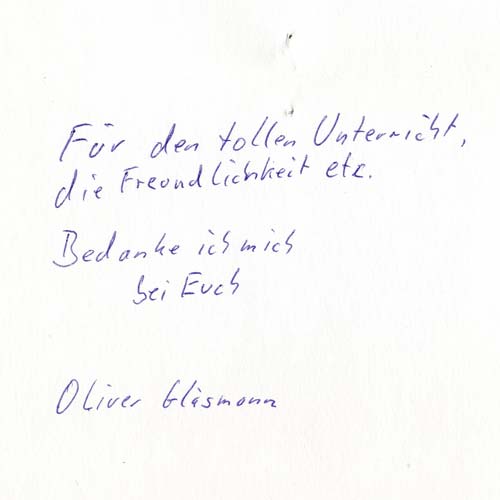 Für den tollen Unterricht,
die Freundlichkeit etc.
Bedanke ich mich
bei Euch
Oliver Gläsmann